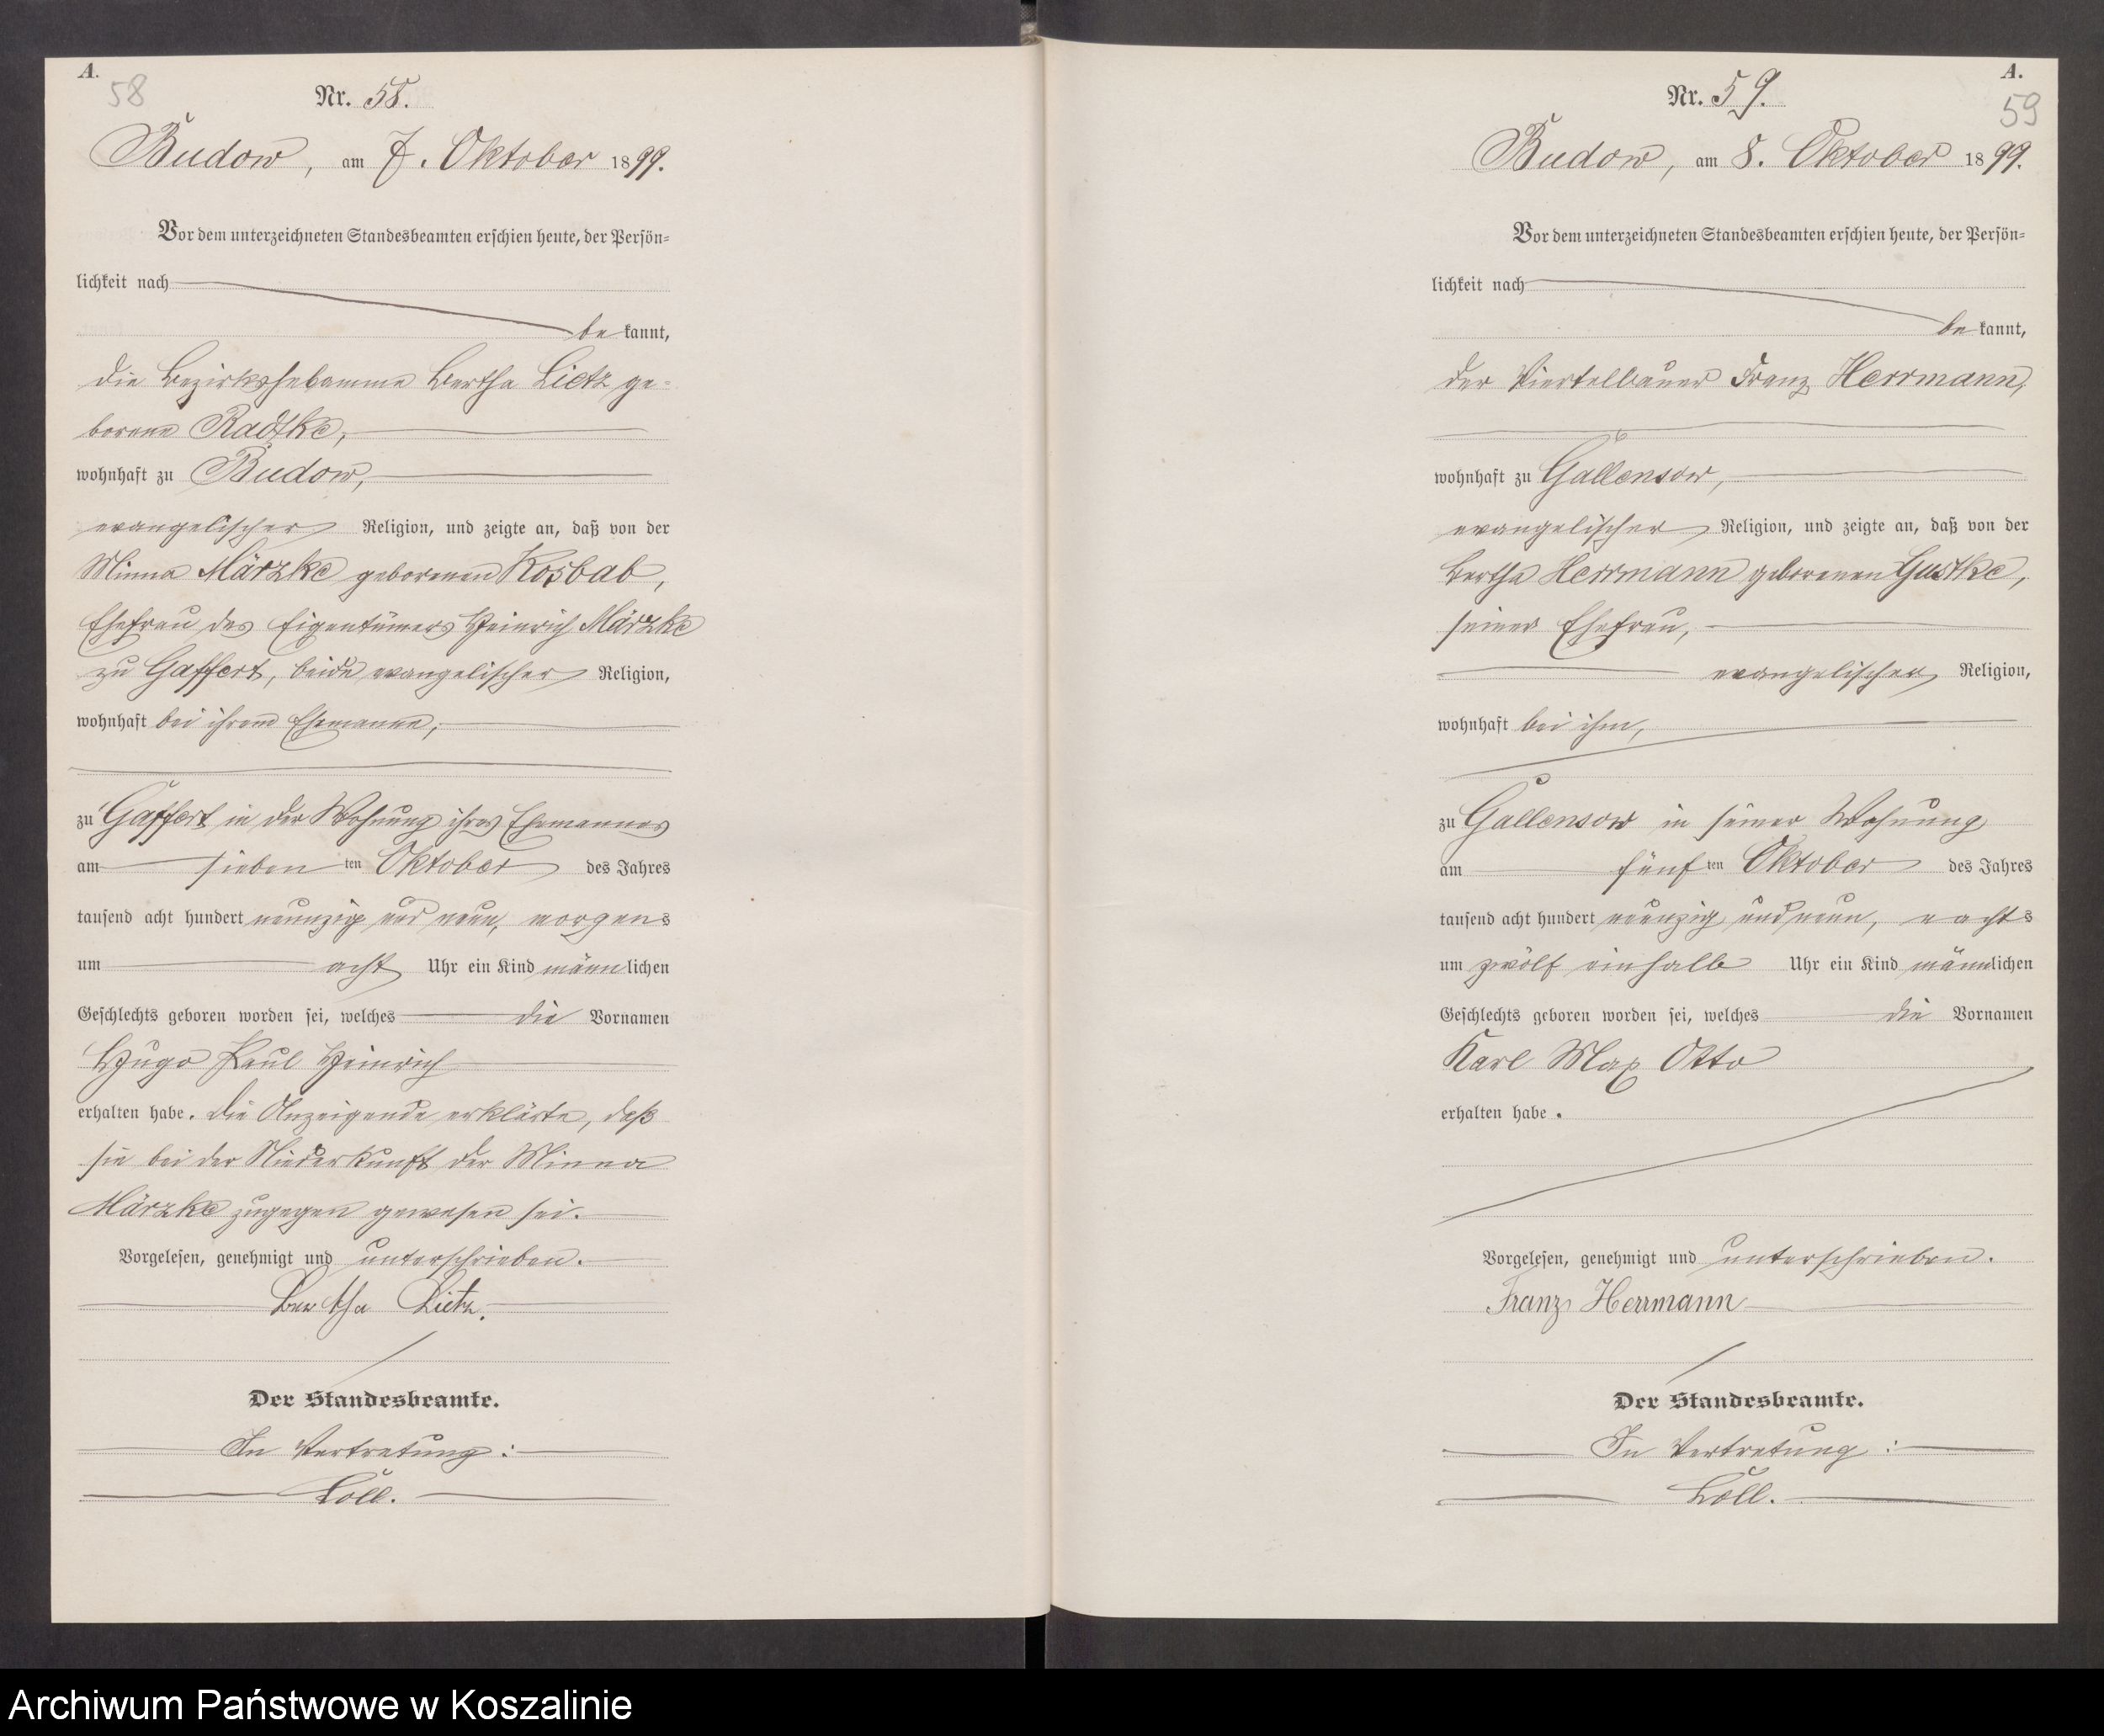 A.
58
Nr. 58.
Budow, am 7. Oktober 1899.
Vor dem unterzeichneten Standesbeamten erschien heute, der Persön=
lichkeit nach
be kannt,
die Bezirkshebamme Bertha Lietz ge=
borene Radtke,
wohnhaft zu Budow,
evangelischer Religion, und zeigte an, daß von der
Minna Märzke geborenen Kosbab,
Ehefrau des Eigentümers Heinrich Märzke
zu Gaffert, beide evangelischer Religion,
wohnhaft bei ihrem Ehemanne,
zu Gaffert in der Wohnung ihres Ehemannes
am sieben ten Oktober des Jahres
tausend acht hundert neunzig und neun, morgens
um acht Uhr ein Kind männlichen
Geschlechts geboren worden sei, welches die Vornamen
Hugo Paul Heinrich
erhalten habe. Die Anzeigende erklärte, daß
sie bei der Niederkunft der Minna
Märzke zugegen gewesen sei.
Vorgelesen, genehmigt und unterschrieben.
Bertha Lietz.
Der Standesbeamte.
In Vertretung:
Löll.
A.
59
Nr. 59.
Budow, am 8. Oktober 1899.
Vor dem unterzeichneten Standesbeamten erschien heute, der Persön=
lichkeit nach
be kannt,
der Viertelbauer Franz Herrmann,
wohnhaft zu Gallensow,
evangelischer Religion, und zeigte an, daß von der
Bertha Herrmann geborenen Gustke,
seiner Ehefrau,
evangelischer Religion,
wohnhaft bei ihm,
zu Gallensow in seiner Wohnung
am fünf ten Oktober des Jahres
tausend acht hundert neunzig und neun, nachts
um zwölf einhalb Uhr ein Kind männlichen
Geschlechts geboren worden sei, welches die Vornamen
Karl Max Otto
erhalten habe.
Vorgelesen, genehmigt und unterschrieben.
Franz Herrmann
Der Standesbeamte.
In Vertretung:
Löll.
Archiwum Państwowe w Koszalinie